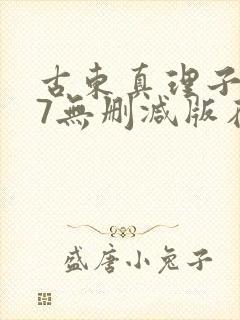 古東真理子
7無删减版
盛唐小兔子